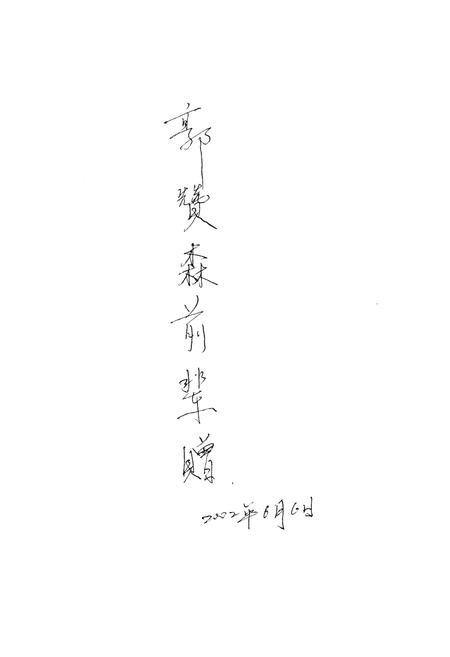 郭赞森前輩贈
2002年6月6日